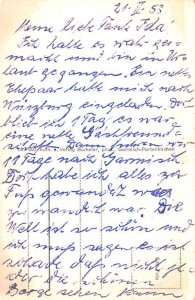 21. II. 53
Meine liebe Tante Ida!
Ich habe es wahr ge-
macht und bin in Ur-
laubt gegangen. Ein nettes
Ehepaar hatte mich nach
Würzburg eingeladen. Dort
blieb ich 1 Tag es war
eine nette Gastfreund-
schaft. Dann fuhren wir
11 Tage nach Garmisch
Dort habe ich alles zu
Fuß gewandert was
zu wandert war. Die
Welt ist so schön und
ich muß sagen es ist
schade daß nicht je-
der die schönen
Berge sehen kann